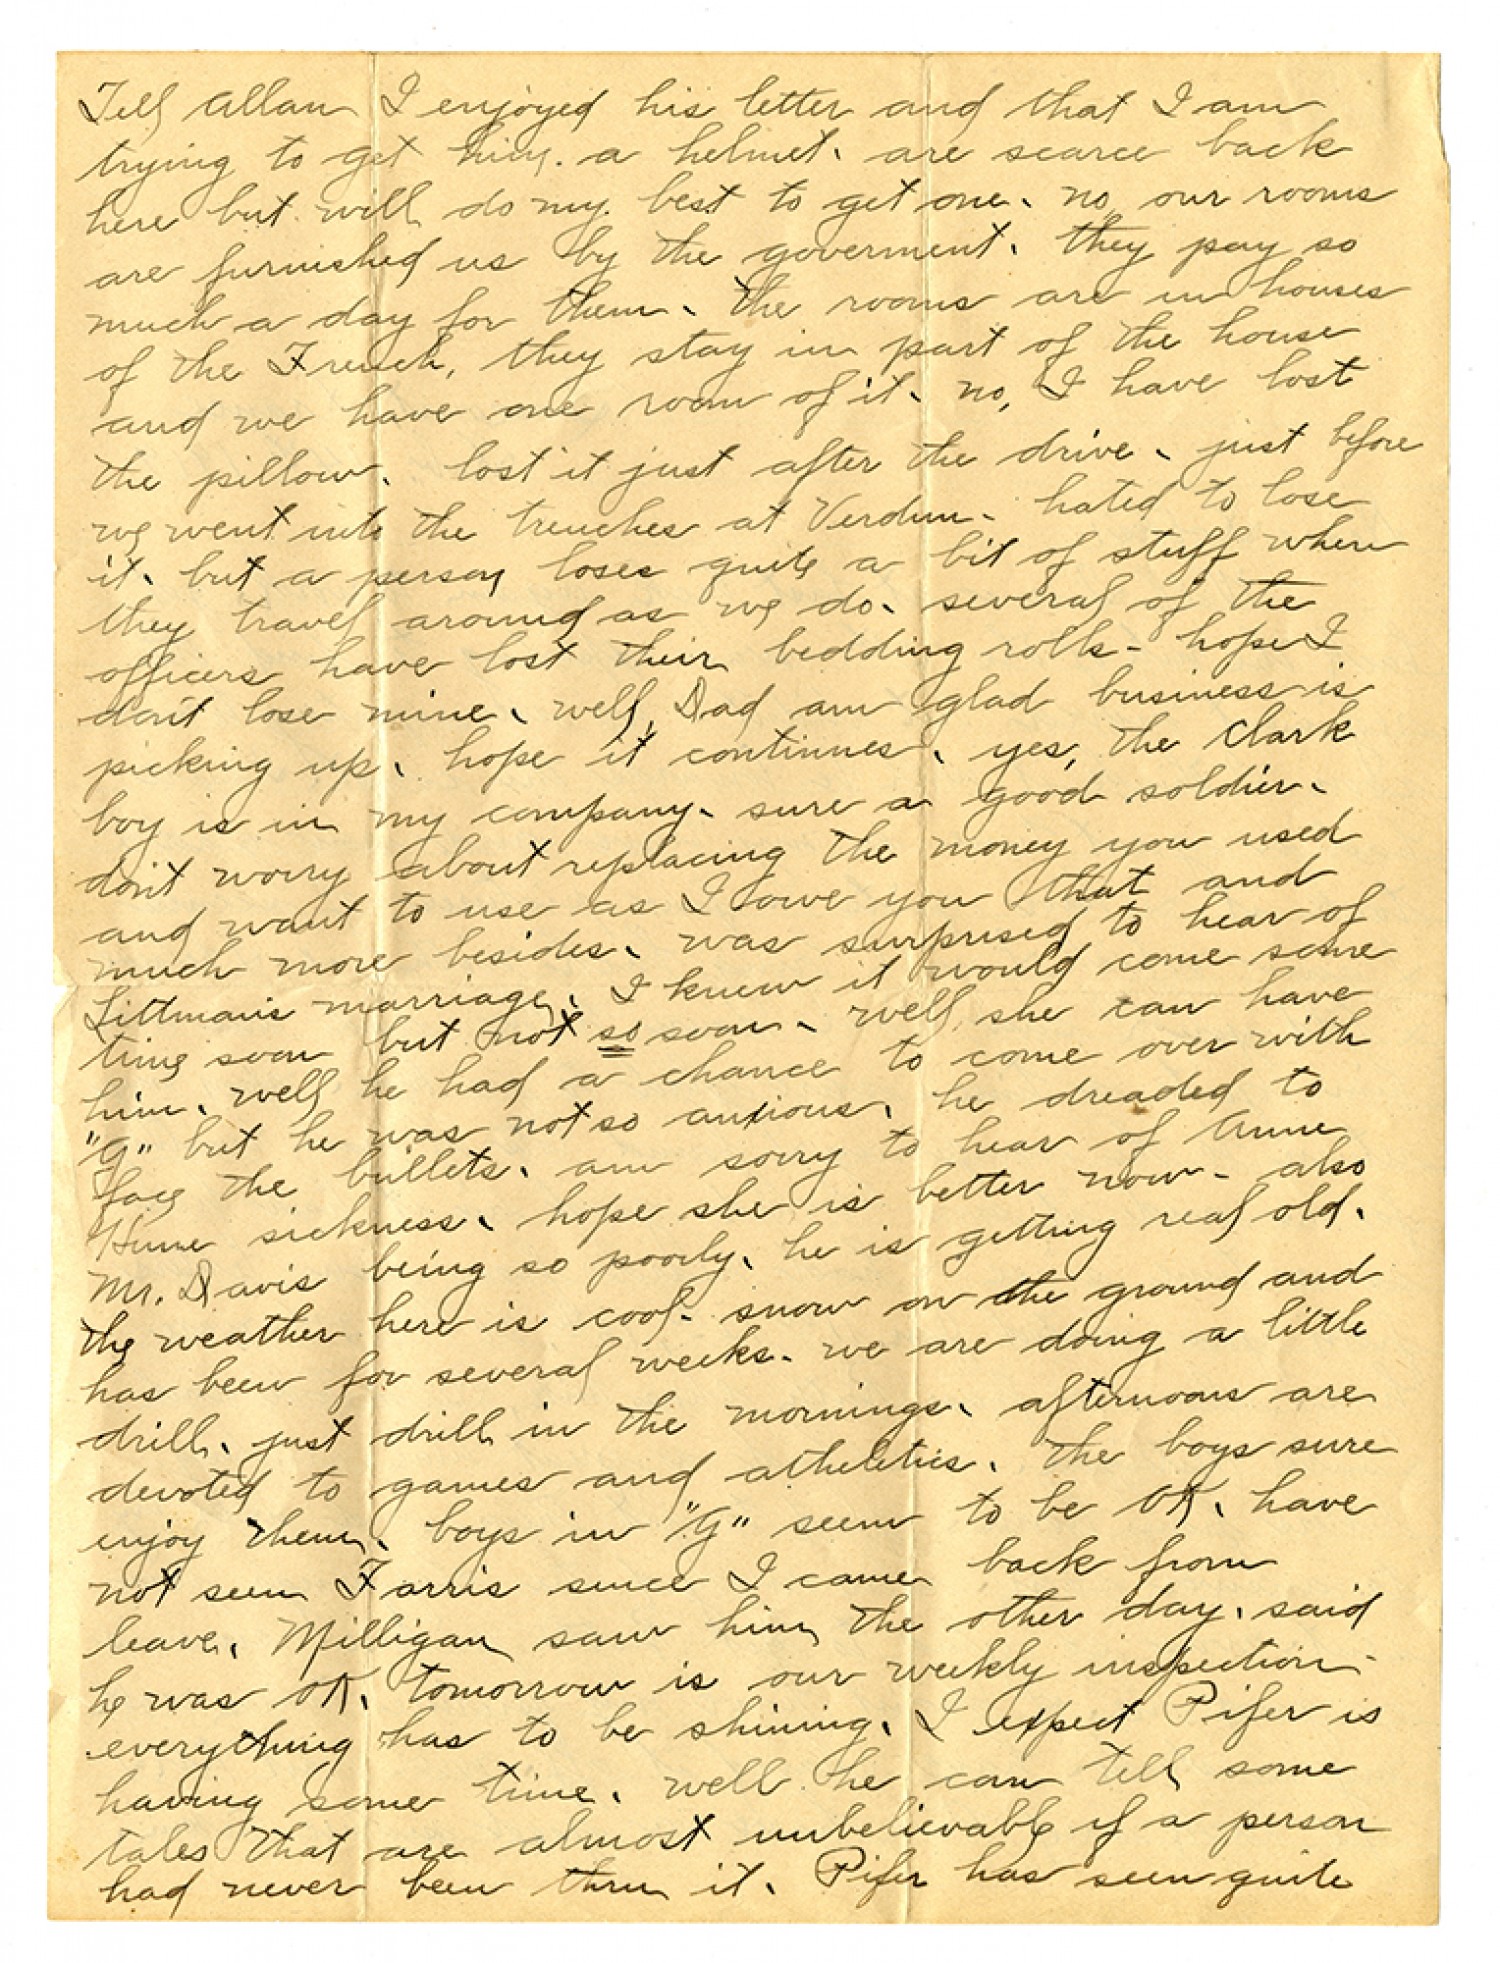 Tell Allan I enjoyed his letter and that I am
trying to get him. a helmet. are scarce back
here but will do my best to get one. no, our rooms
are furnished us by the goverment. they pay so
much a day for them. the rooms are in houses
of the French, they stay in part of the house
and we have one room of it. no, I have lost
the pillow. lost it just after the drive. just before
we went into the trenches at Verdun. hated to lose
it. but a person loses quite a bit of stuff when
they travel around as we do. several of the
officers have lost their bedding rolls - hope I
don't lose mine. well, Dad am glad business is
picking up. hope it continues. yes, the Clark
boy is in my company. sure a good soldier.
don't worry about replacing the money you used
and want to use as I owe you that and
much more besides. was surprised to hear of
Littman's marriage. I knew it would come some
time soon but not so soon. well, she can have
him. well he had a chance to come over with
"G" but he was not so anxious. he dreaded to
face the bullets. am sorry to hear of Anne
Hume sickness. hope she is better now - also
Mr. Davis being so poorly. he is getting real old.
the weather here is cool - snow on the ground and
has been for several weeks. we are doing a little
drill. just drill in the mornings. afternoons are
devoted to games and atheletics. the boys sure
enjoy them. boys in "G" seem to be OK. have
not seen Farris since I came back from
leave. Milligan saw him the other day. said
he was OK. tomorrow is our weekly inspection -
everything has to be shining. I expect Pifer is
having some time. well he can tell some
tales that are almost unbelievable if a person
had never been thru it. Pifer has seen quite